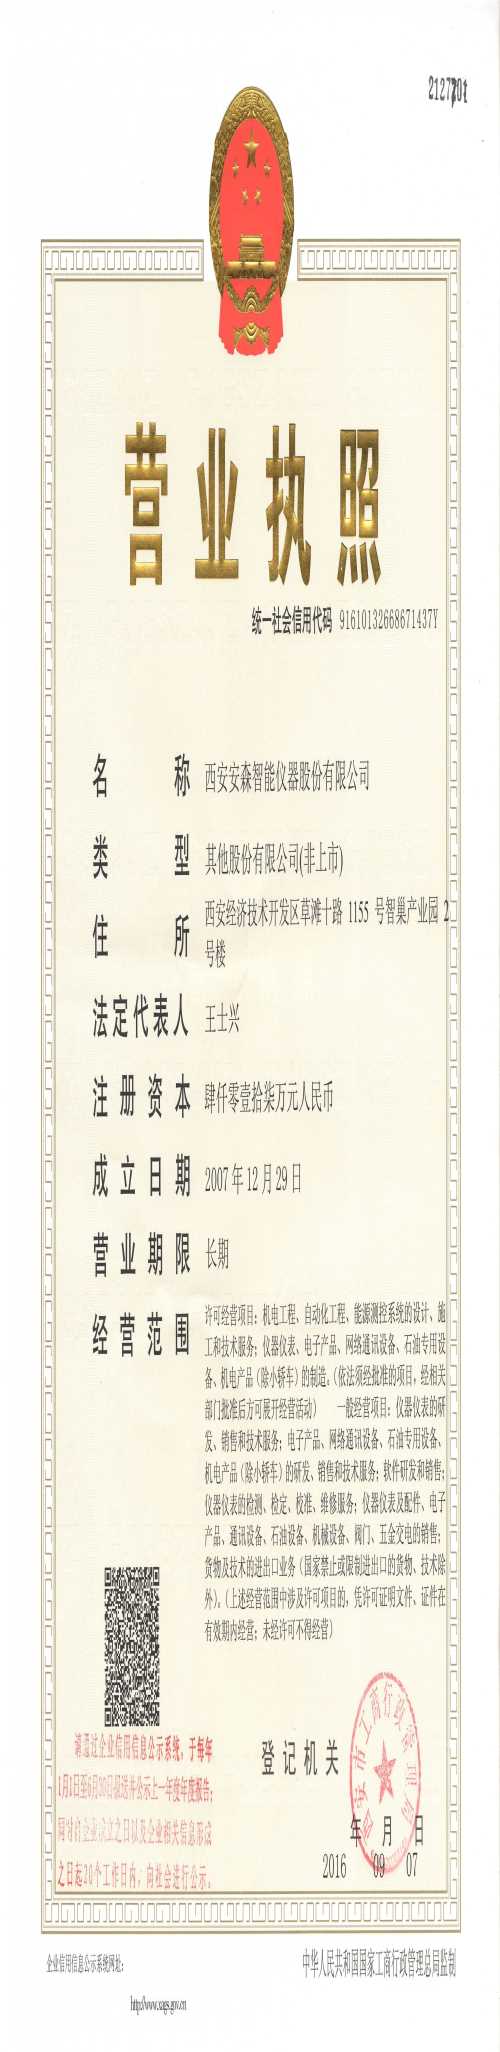 营业执照
统一社会信用代码 91610132668671437Y
名称 西安安森智能仪器股份有限公司
类型 其他股份有限公司(非上市)
住所 西安经济技术开发区草滩十路 1155 号智巢产业园 2
号楼
法定代表人 王士兴
注册资本 肆仟零壹拾柒万元人民币
成立日期 2007年12月29日
营业期限 长期
经营范围 许可经营项目：机电工程、自动化工程、能源测控系统的设计、施
工和技术服务；仪器仪表、电子产品、网络通讯设备、石油专用设
备、机电产品（除小轿车）的制造。（依法须经批准的项目，经相关
部门批准后方可展开经营活动） 一般经营项目：仪器仪表的研
发、销售和技术服务；电子产品、网络通讯设备、石油专用设备、
机电产品（除小轿车）的研发、销售和技术服务；软件研发和销售；
仪器仪表的检测、检定、校准、维修服务；仪器仪表及配件、电子
产品、通讯设备、石油设备、机械设备、阀门、五金交电的销售；
货物及技术的进出口业务（国家禁止或限制进出口的货物、技术除
外）。（上述经营范围中涉及许可项目的，凭许可证明文件、证件在
有效期内经营；未经许可不得经营）
请通过企业信用信息公示系统，于每年
1月1日至6月30日报送并公示上一年度年度报告；
同时自企业成立之日以及企业相关信息形成
之日起20个工作日内，向社会进行公示。
登记机关
年 月 日
2016 09 07
企业信用信息公示系统网址：
http://www.xags.gov.cn
中华人民共和国国家工商行政管理总局监制